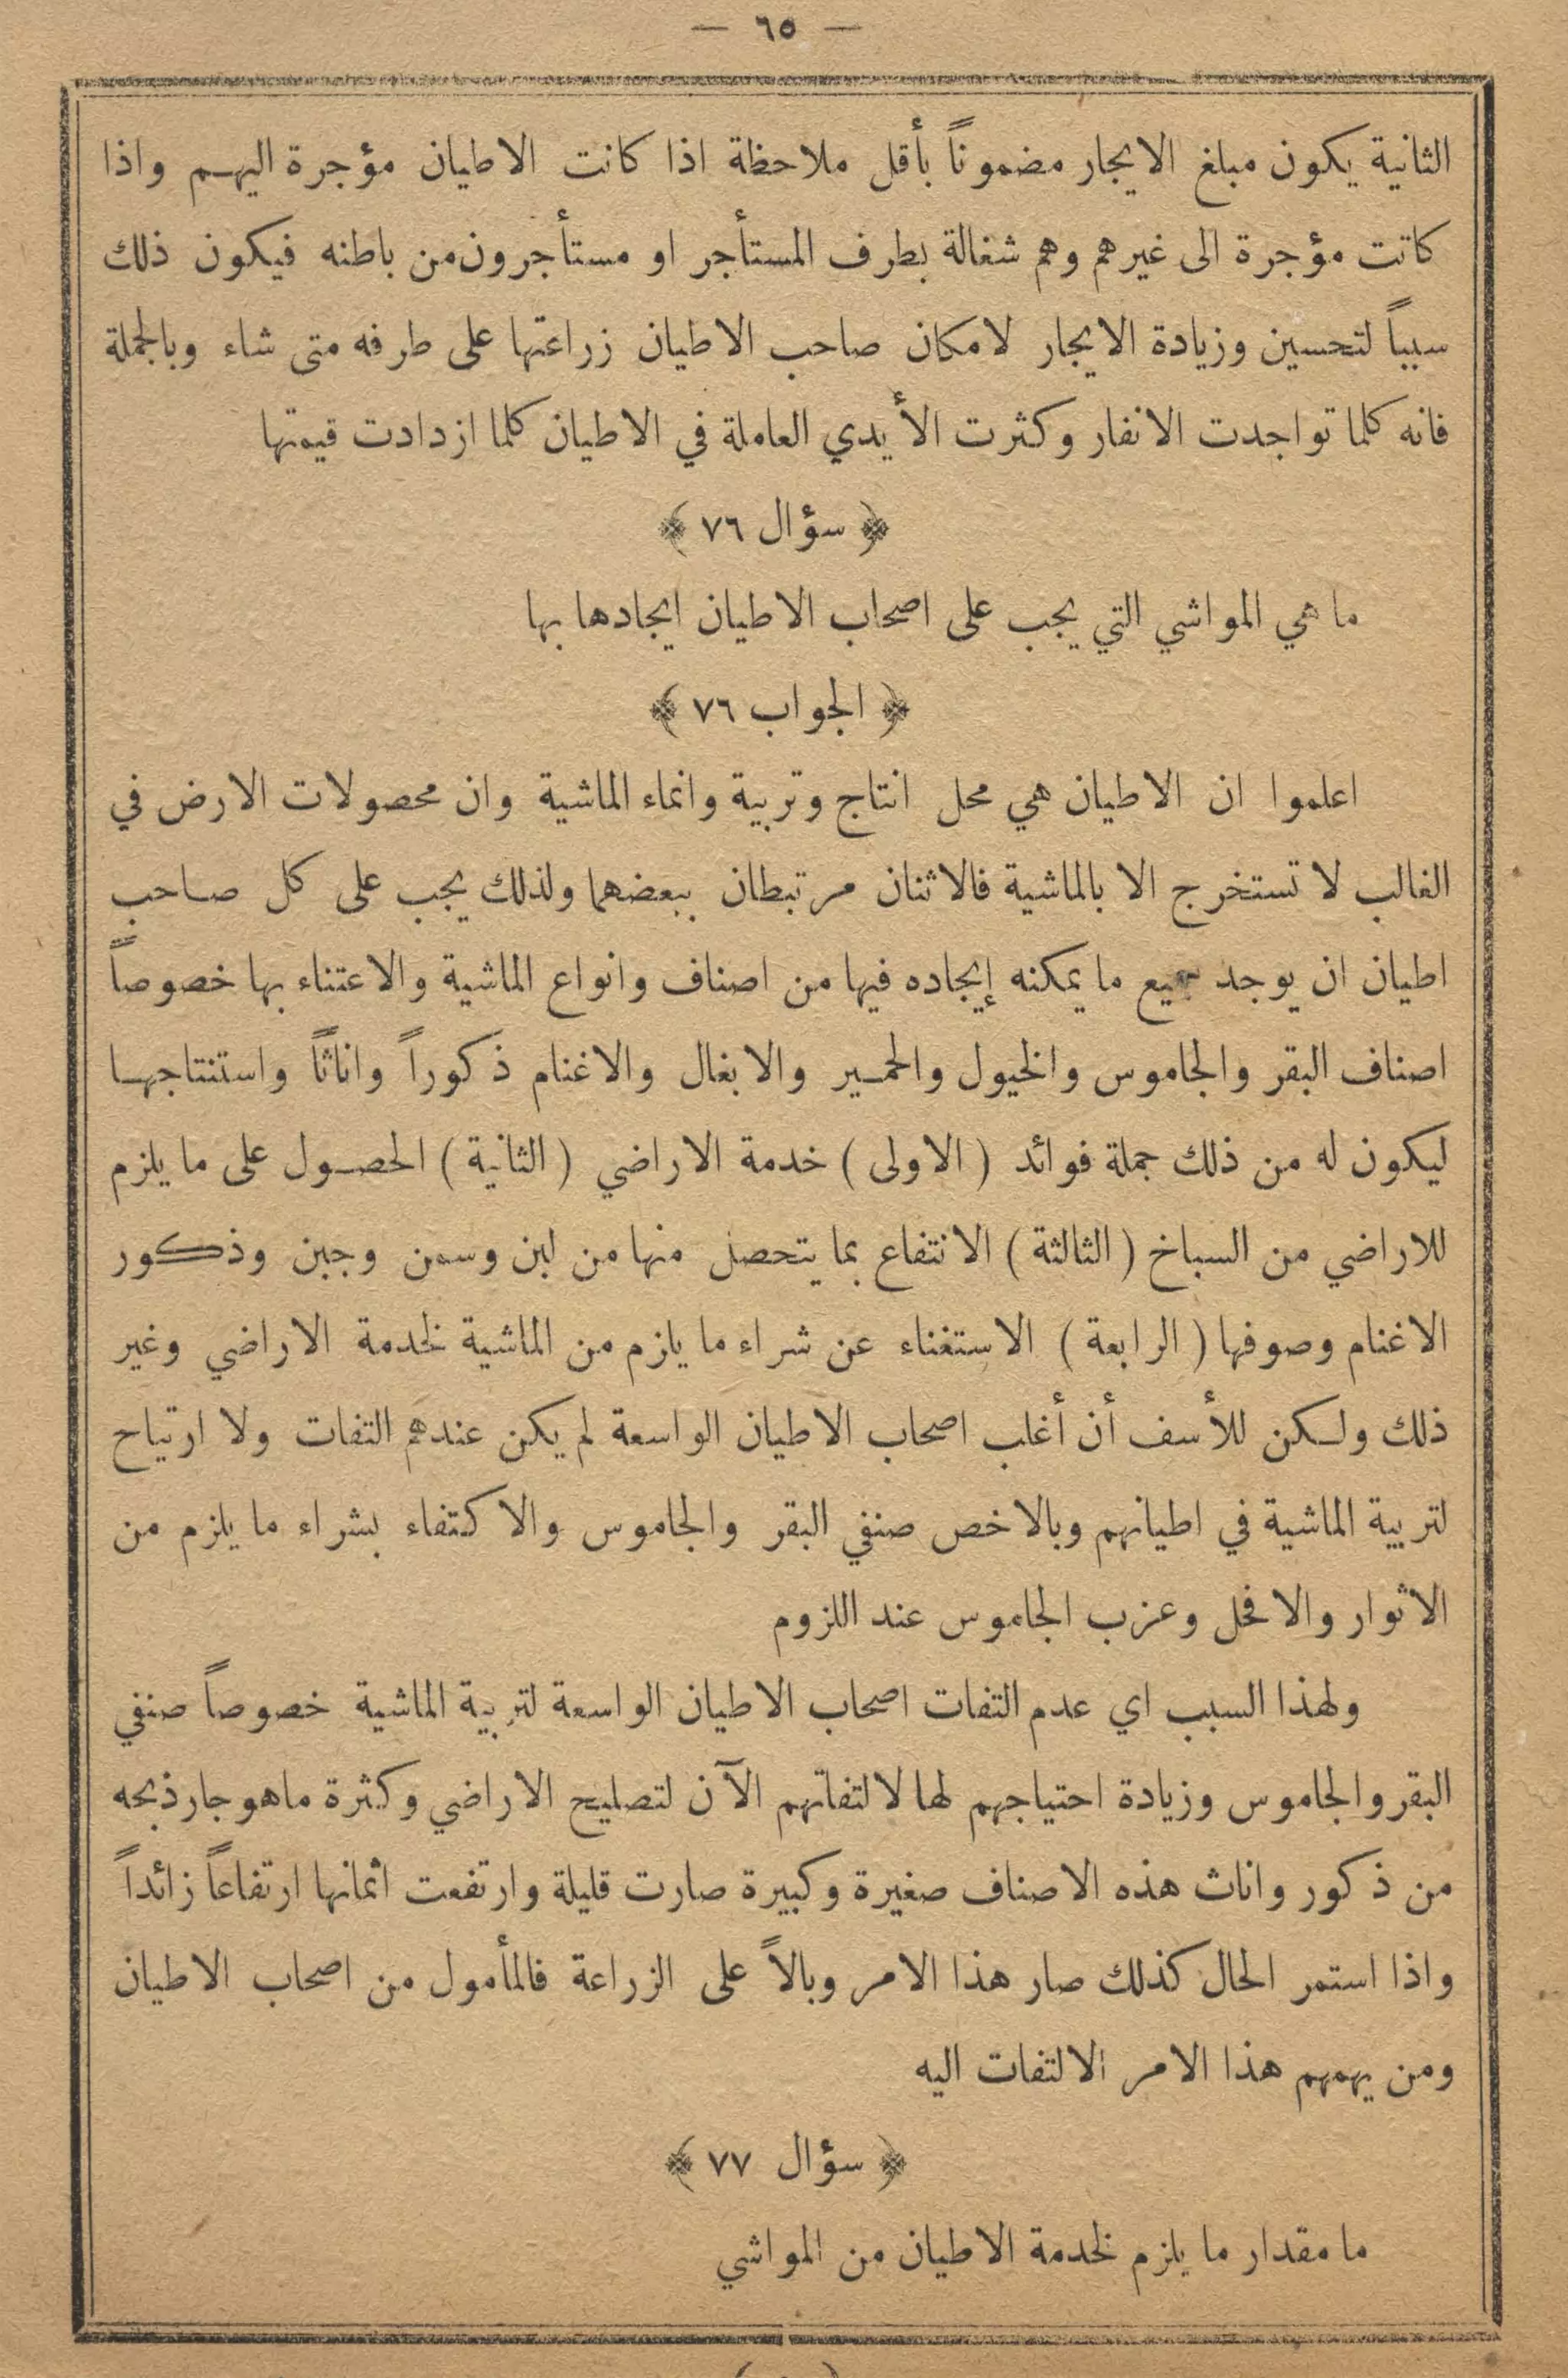 — ٦٥ —
الثانية يكون مبلغ الايجار مضموناً بأقل ملاحظة اذا كانت الاطيان مؤجرة اليهم واذا
كانت مؤجرة الى غيرهم وهم شغالة بطرف المستأجر او مستأجرون من باطنه فيكون ذلك
سبباً لتحسين وزيادة الايجار لامكان صاحب الاطيان زراعتها على طرفه متى شاء وبالجملة
فانه كلما تواجدت الانفار وكثرت الأيدي العاملة في الاطيان كلما ازدادت قيمتها
﴿ سؤال ٧٦ ﴾
ما هي المواشي التي يجب على اصحاب الاطيان ايجادها بها
﴿ الجواب ٧٦ ﴾
اعلموا ان الاطيان هي محل انتاج وتربية وانماء الماشية وان محصولات الارض في
الغالب لا تستخرج الا بالماشية فالاثنان مرتبطان ببعضهما ولذلك يجب على كل صاحب
اطيان ان يوجد جميع ما يمكنه إيجاده فيها من اصناف وانواع الماشية والاعتناء بها خصوصاً
اصناف البقر والجاموس والخيول والحمير والابغال والاغنام ذكوراً واناثاً واستنتاجها
ليكون له من ذلك جملة فوائد ( الاولى ) خدمة الاراضي ( الثانية ) الحصول على ما يلزم
للاراضي من السباخ ( الثالثة ) الانتفاع بما يتحصل منها من لبن وسمن وجبن وذكور
الاغنام وصوفها ( الرابعة ) الاستغناء عن شراء ما يلزم من الماشية لخدمة الاراضي وغير
ذلك ولكن للأسف أن أغلب اصحاب الاطيان الواسعة لم يكن عندهم التفات ولا ارتياح
لتربية الماشية في اطيانهم وبالاخص صنفي البقر والجاموس والاكتفاء بشراء ما يلزم من
الاثوار والافحل وعزب الجاموس عند اللزوم
ولهذا السبب اي عدم التفات اصحاب الاطيان الواسعة لتربية الماشية خصوصاً صنفي
البقر والجاموس وزيادة احتياجهم لها لالتفاتهم الآن لتصليح الاراضي وكثرة ماهو جار ذبحه
من ذكور واناث هذه الاصناف صغيرة وكبيرة صارت قليلة وارتفعت اثمانها ارتفاعاً زائداً
واذا استمر الحال كذلك صار هذا الامر وبالاً على الزراعة فالمأمول من اصحاب الاطيان
ومن يهمهم هذا الامر الالتفات اليه
﴿ سؤال ٧٧ ﴾
ما مقدار ما يلزم لخدمة الاطيان من المواشي